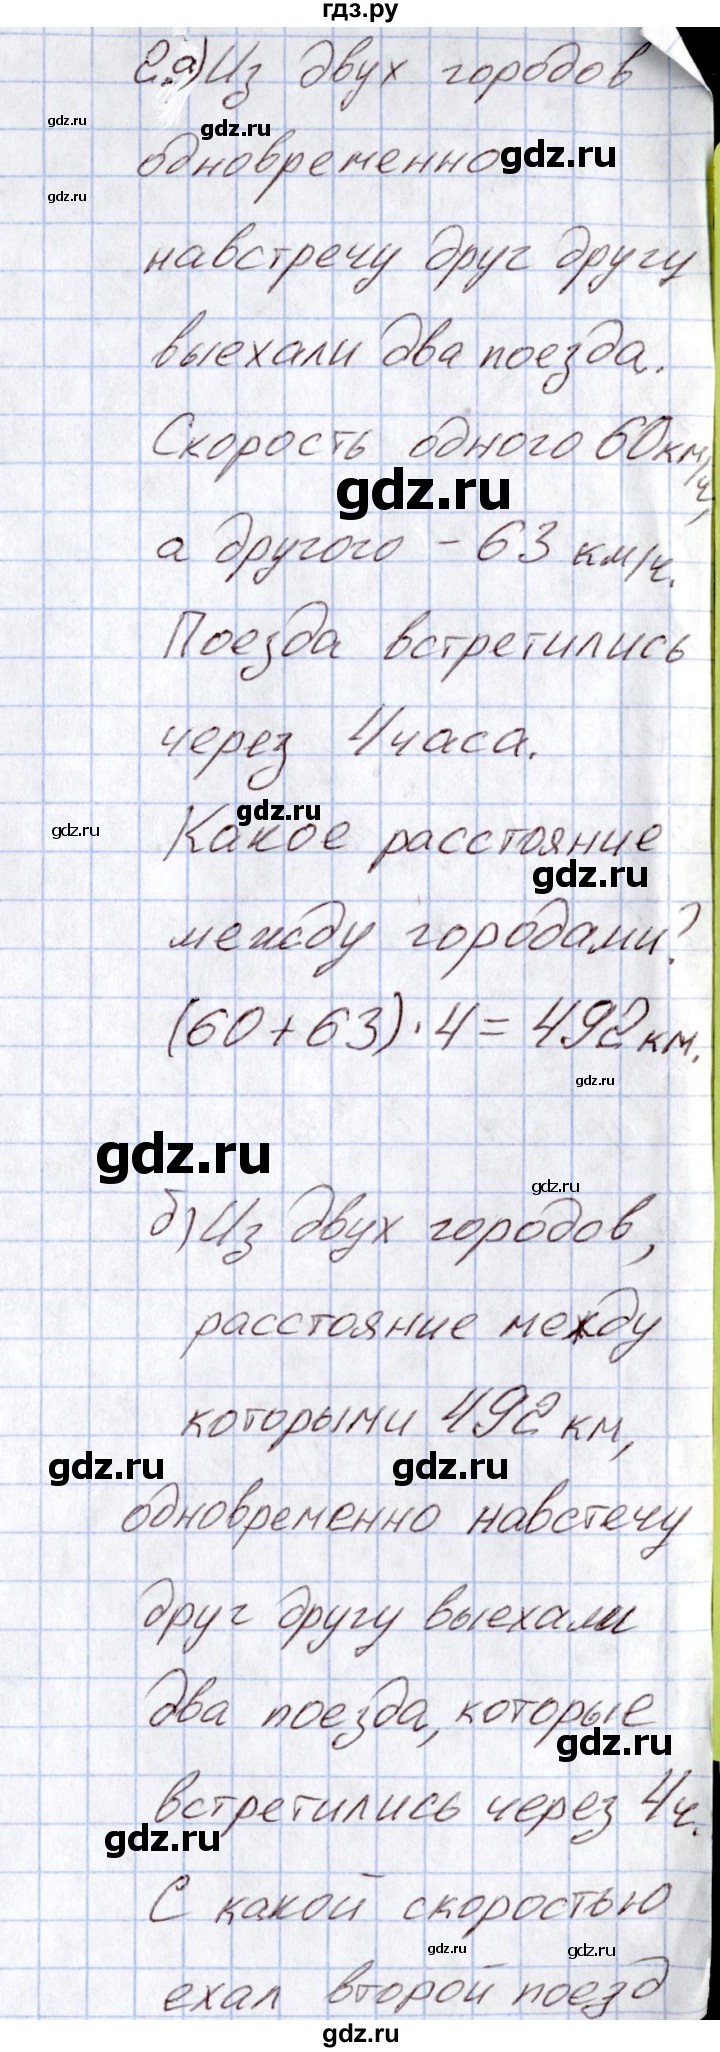 гдз.ру
2.а) Из двух городов
gdz.ru
gdz.ru
одновременно
gdz.ru
gdz.ru
навстречу друг другу
выехали два поезда.
Скорость одного 60 км/ч,
gdz.ru
а другого – 63 км/ч.
Поезда встретились
через 4 часа.
gdz.ru
gdz.ru
Какое расстояние
gdz.ru
между городами?
(60+63)·4=492 км.
gdz.ru
gdz.ru
gdz.ru
б) Из двух городов,
расстояние между
которыми 492 км,
gdz.ru
gdz.ru
одновременно навстечу
друг другу выехали
два поезда, которые
gdz.ru
встретились через 4ч.
gdz.ru
С какой скоростью
gdz.ru
gdz.ru
ехал второй поезд
gdz.ru